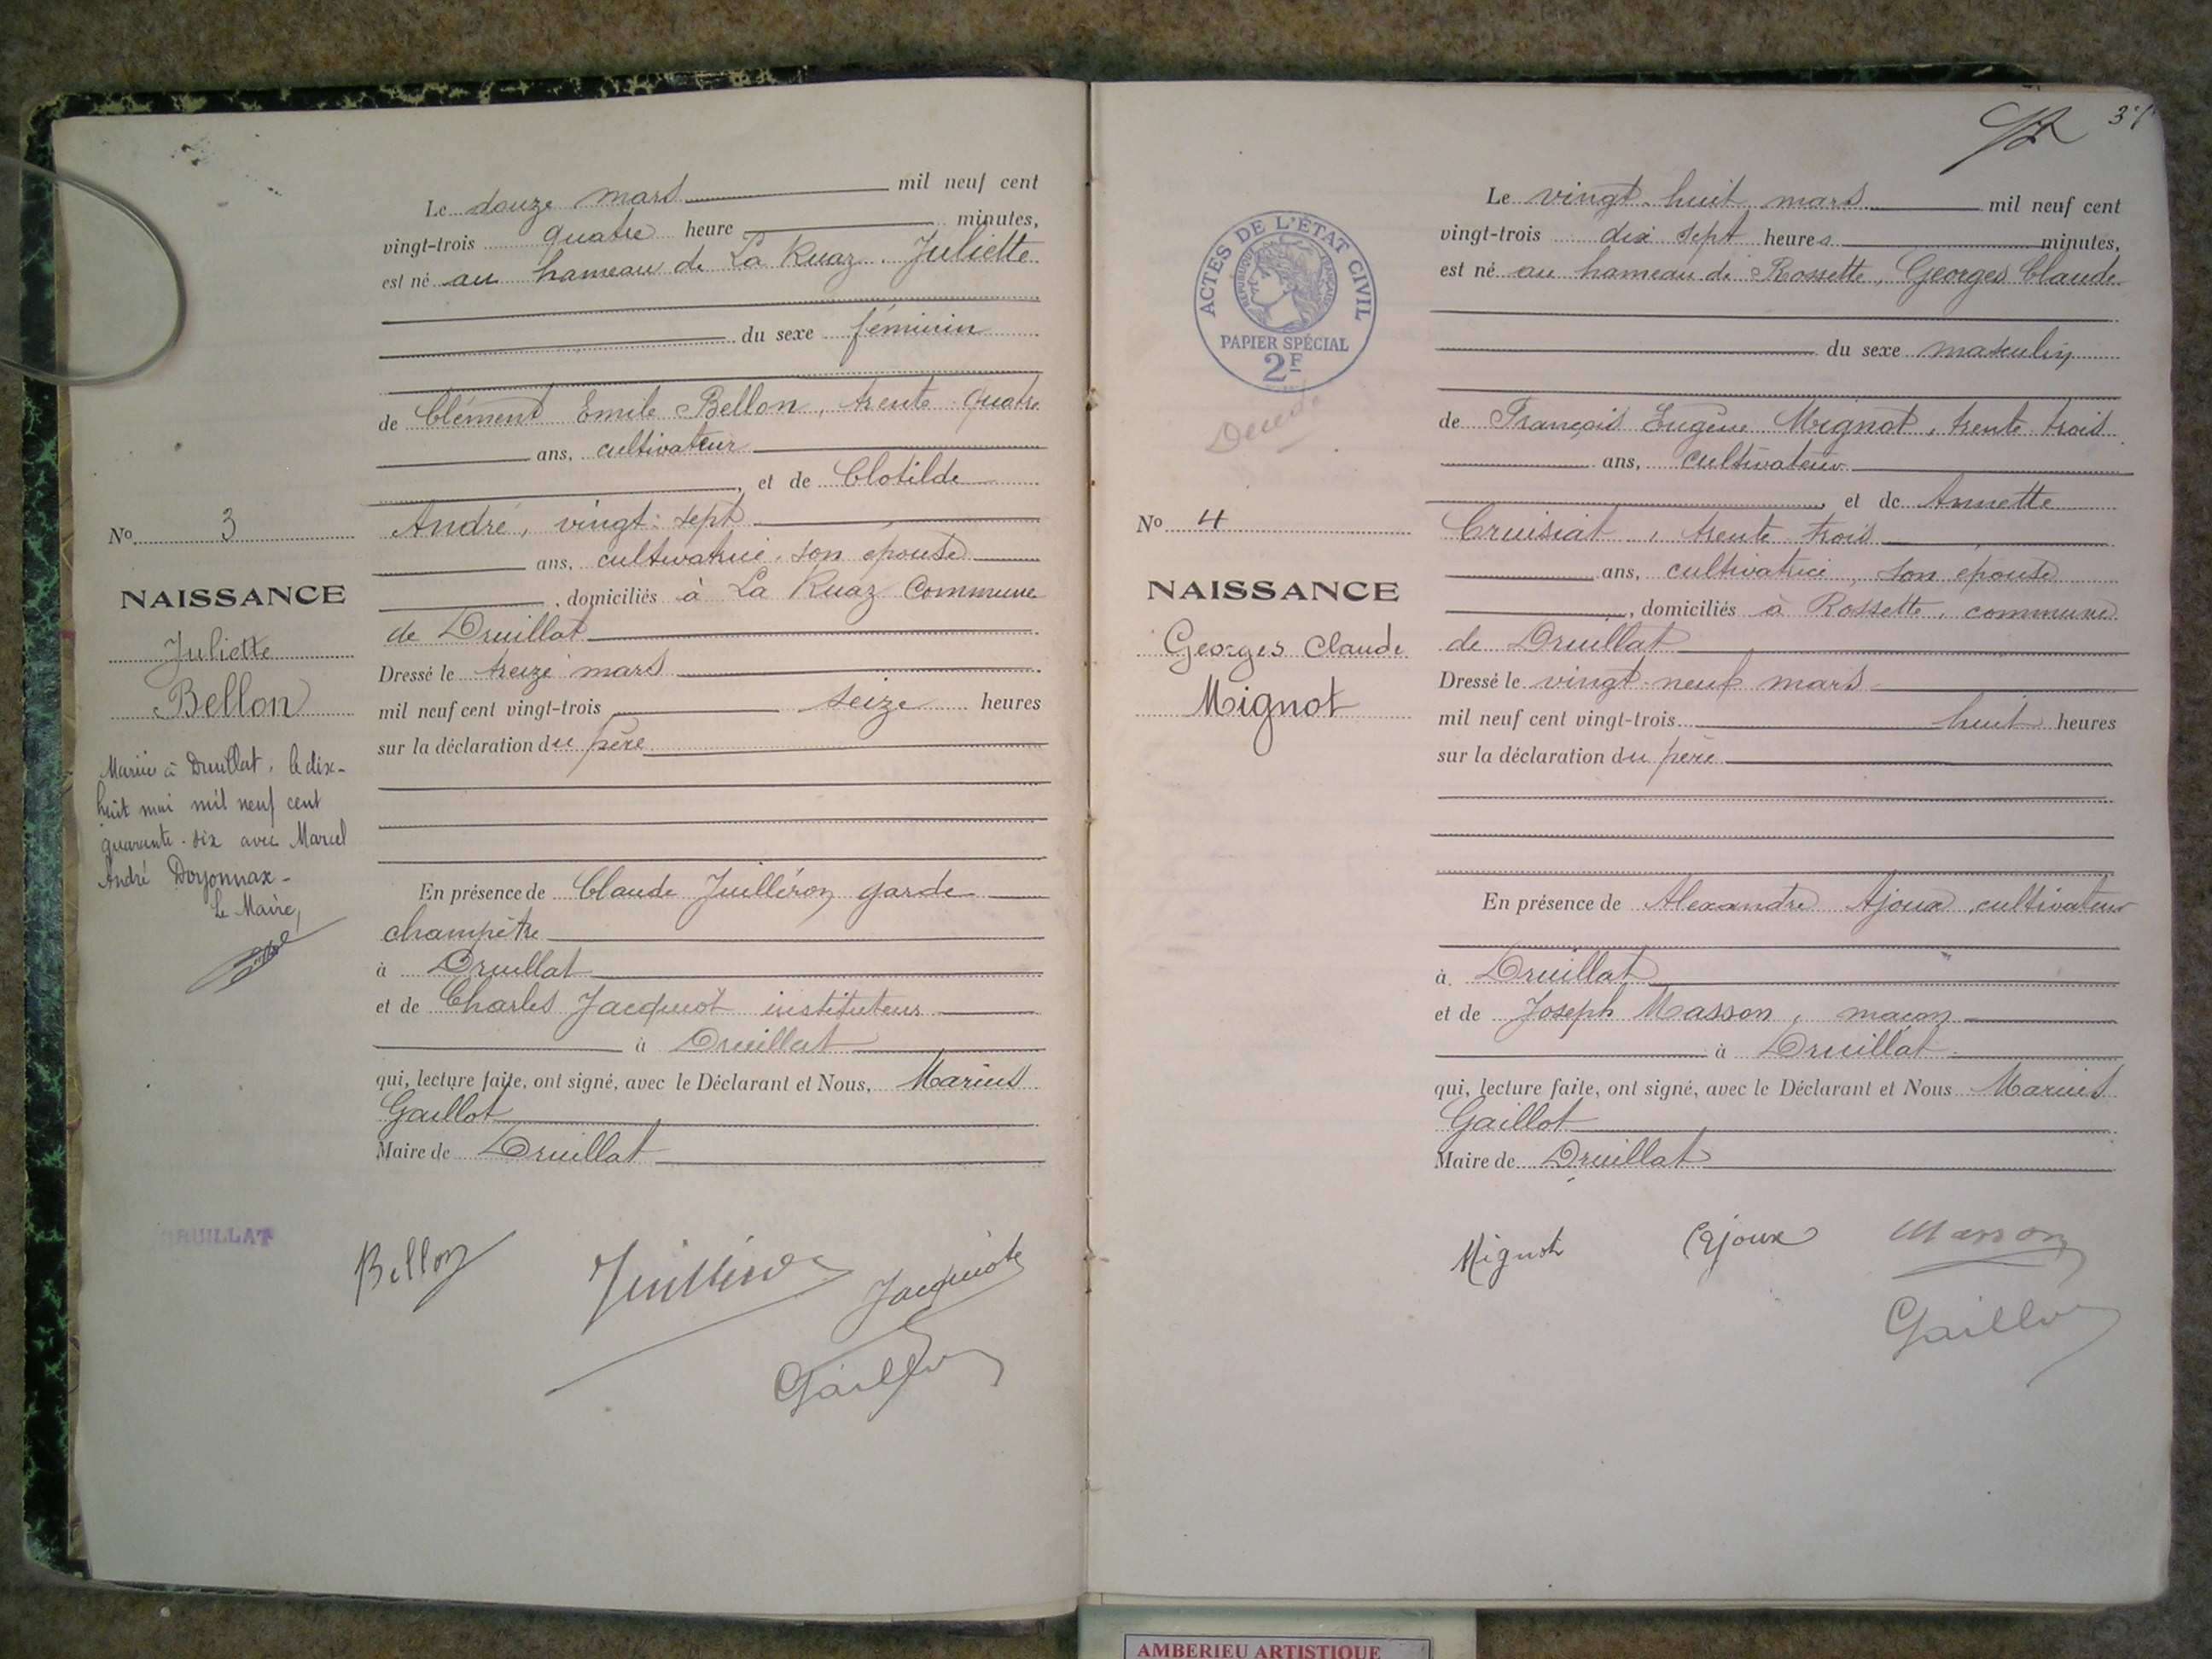 Le douze mars mil neuf cent
vingt-trois quatre heure minutes,
est né au hameau de La Ruaz, Juliette
du sexe féminin
de Clément Emile Bellon, trente quatre
ans, cultivateur
, et de Clotilde
André, vingt-sept
ans, cultivatrice, son épouse
, domiciliés à La Ruaz commune
de Druillat
Dressé le treize mars
mil neuf cent vingt-trois seize heures
sur la déclaration du père
En présence de Claude Juilléron, garde
champêtre
à Druillat
et de Charles Jacquiot instituteur
à Druillat
qui, lecture faite, ont signé, avec le Déclarant et Nous, Marius
Gaillot
Maire de Druillat
No 3
NAISSANCE
Juliette
Bellon
Mariée à Druillat, le dix-
huit mai mil neuf cent
quarante-six avec Marcel
André Doyonnax-
Le Maire,
DRUILLAT
Bellon
Juilléron
Jacquiot
Gaillot
Le vingt-huit mars mil neuf cent
vingt-trois dix sept heures minutes,
est né au hameau de Rossette, Georges Claude
du sexe masculin
de François Eugène Mignot, trente-trois
ans, cultivateur
, et de Annette
Cruisiat, trente-trois
ans, cultivatrice, son épouse
, domiciliés à Rossette, commune
de Druillat
Dressé le vingt-neuf mars
mil neuf cent vingt-trois huit heures
sur la déclaration du père
En présence de Alexandre Ajoux, cultivateur
à Druillat
et de Joseph Masson, maçon
à Druillat
qui, lecture faite, ont signé, avec le Déclarant et Nous Marius
Gaillot
Maire de Druillat
ACTES DE L'ÉTAT CIVIL
RÉPUBLIQUE FRANÇAISE
PAPIER SPÉCIAL
2F
No 4
NAISSANCE
Georges Claude
Mignot
Mignot
Ajoux
Masson
Gaillot
AMBERIEU ARTISTIQUE